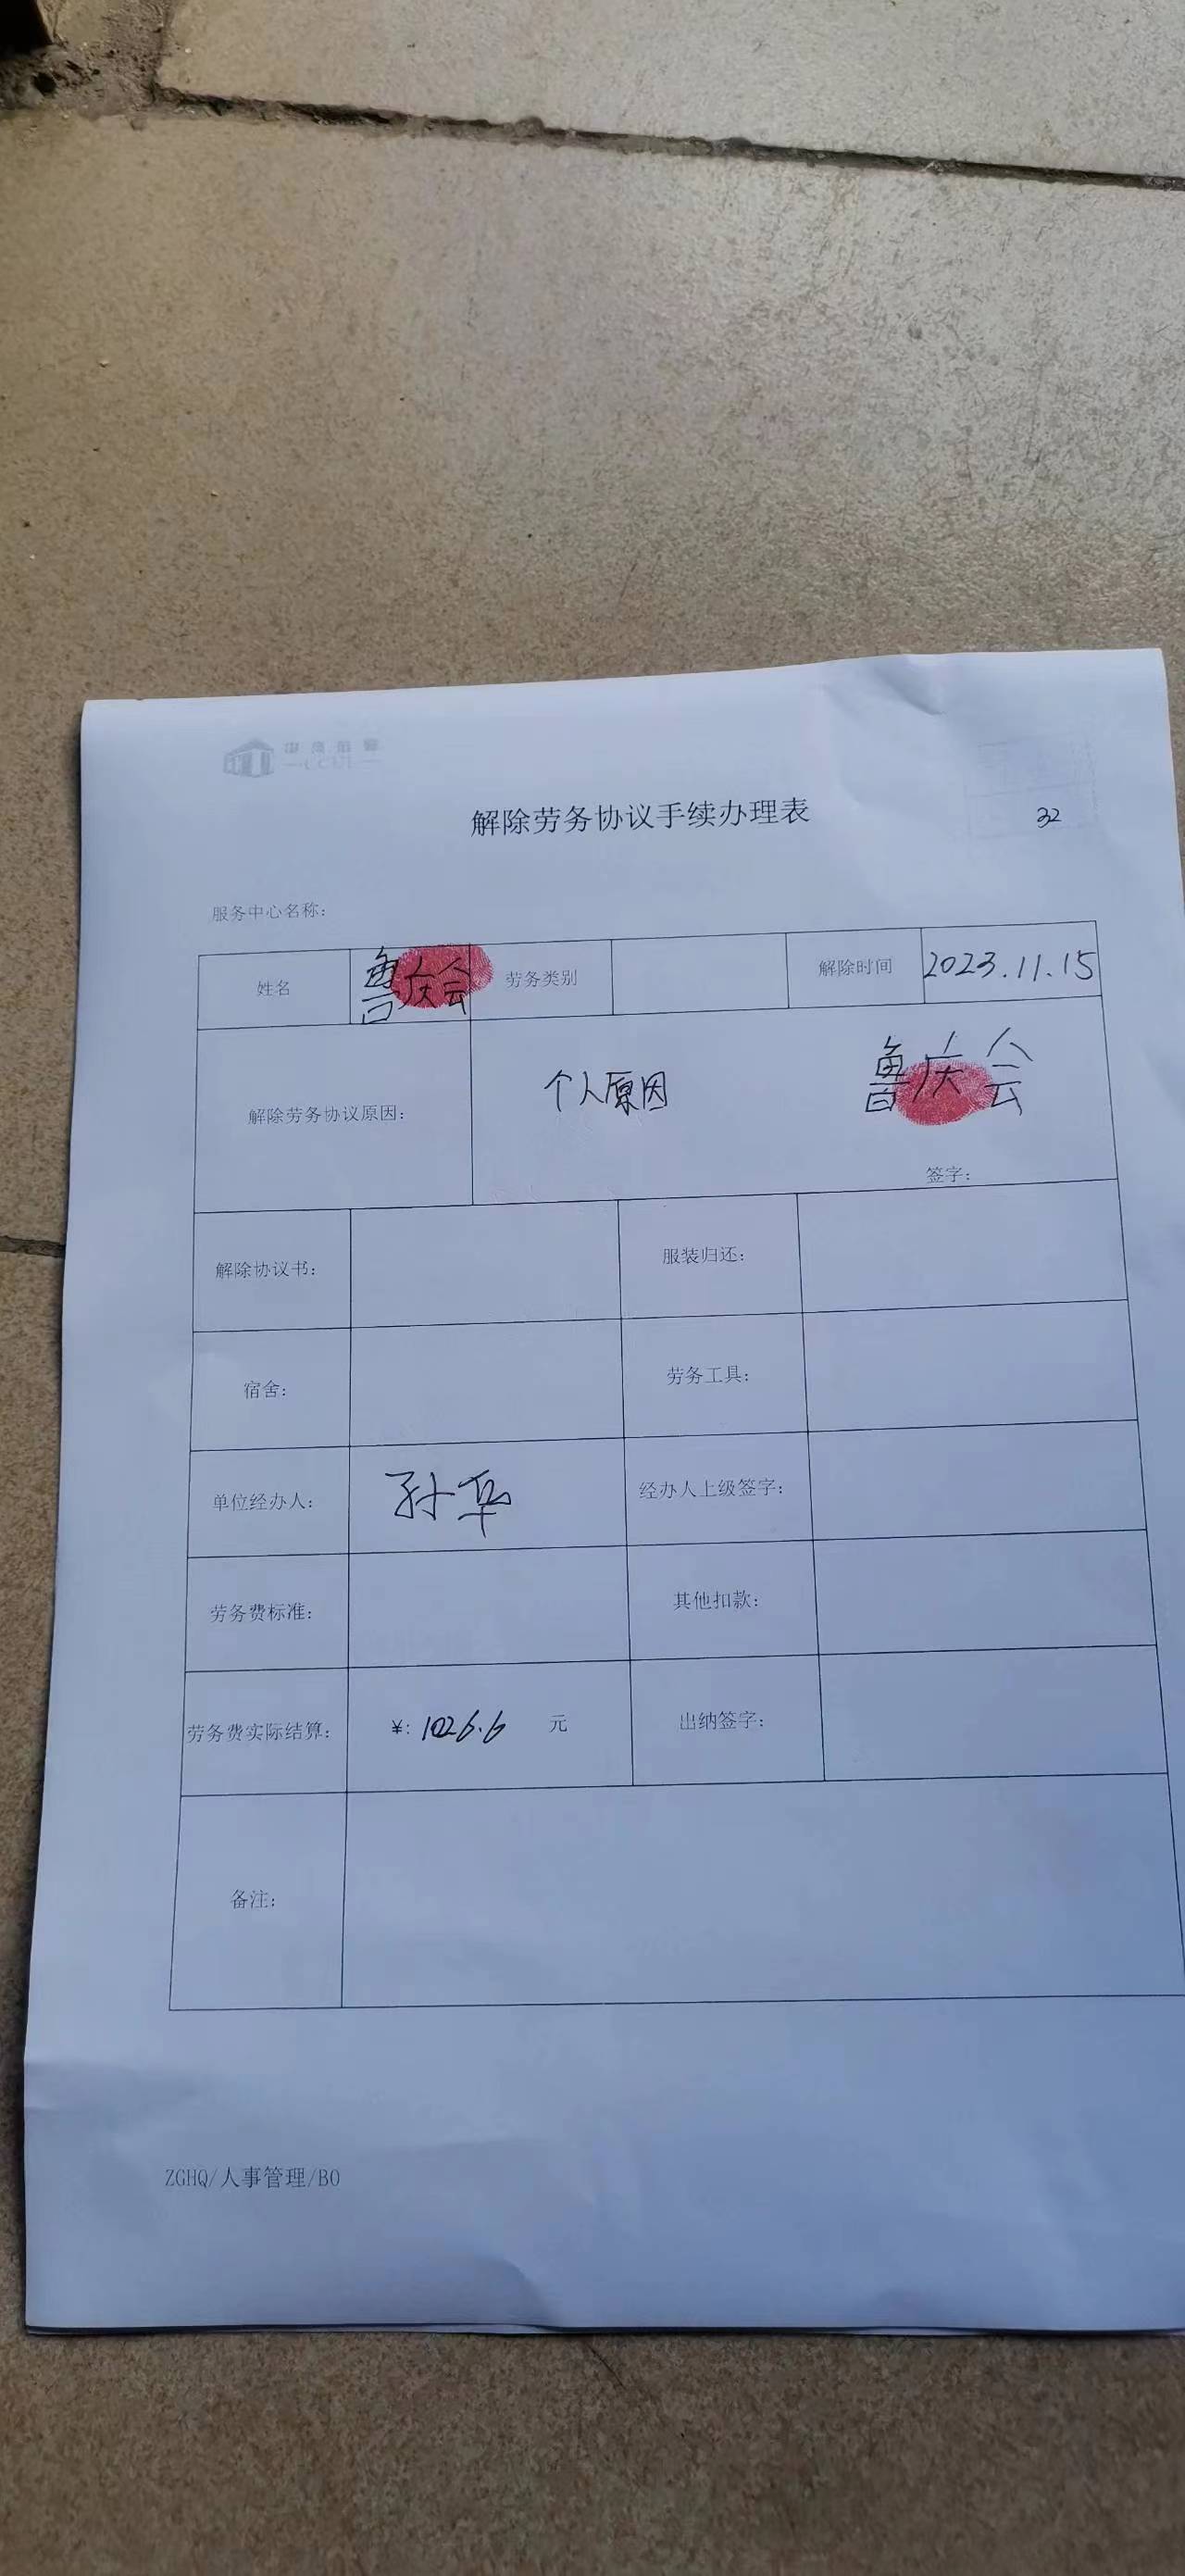 解除劳务协议手续办理表
32
服务中心名称:
姓名 鲁庆会 劳务类别 解除时间 2023.11.15
解除劳务协议原因: 个人原因 鲁庆会
签字:
解除协议书: 服装归还:
宿舍: 劳务工具:
单位经办人: 孙华 经办人上级签字:
劳务费标准: 其他扣款:
劳务费实际结算: ¥: 1026.6 元 出纳签字:
备注:
ZGHQ/人事管理/B0